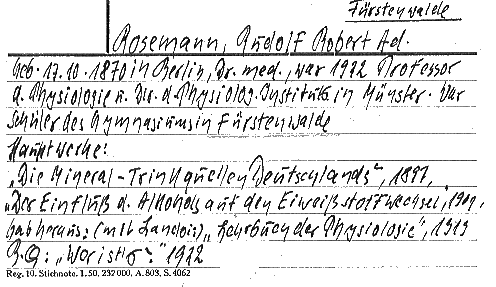 Fürstenwalde
Rosemann, Rudolf Robert Ad.
Geb. 17.10.1870 in Berlin, Dr. med., war 1922 Professor
d. Physiologie u. Dir. d. Physiolog. Instituts in Münster. War
Schüler des Gymnasiums in Fürstenwalde
Hauptwerke:
„Die Mineral-Trinkquellen Deutschlands", 1897,
„Der Einfluß d. Alkohols auf den Eiweißstoffwechsel, 1901,
gab heraus, (mit Landois) „Lehrbuch der Physiologie", 1919
B.Q: „Wer ist's." 1922
Reg. 10. Stichnote. 1.50, 232 000, A. 803, S. 4062